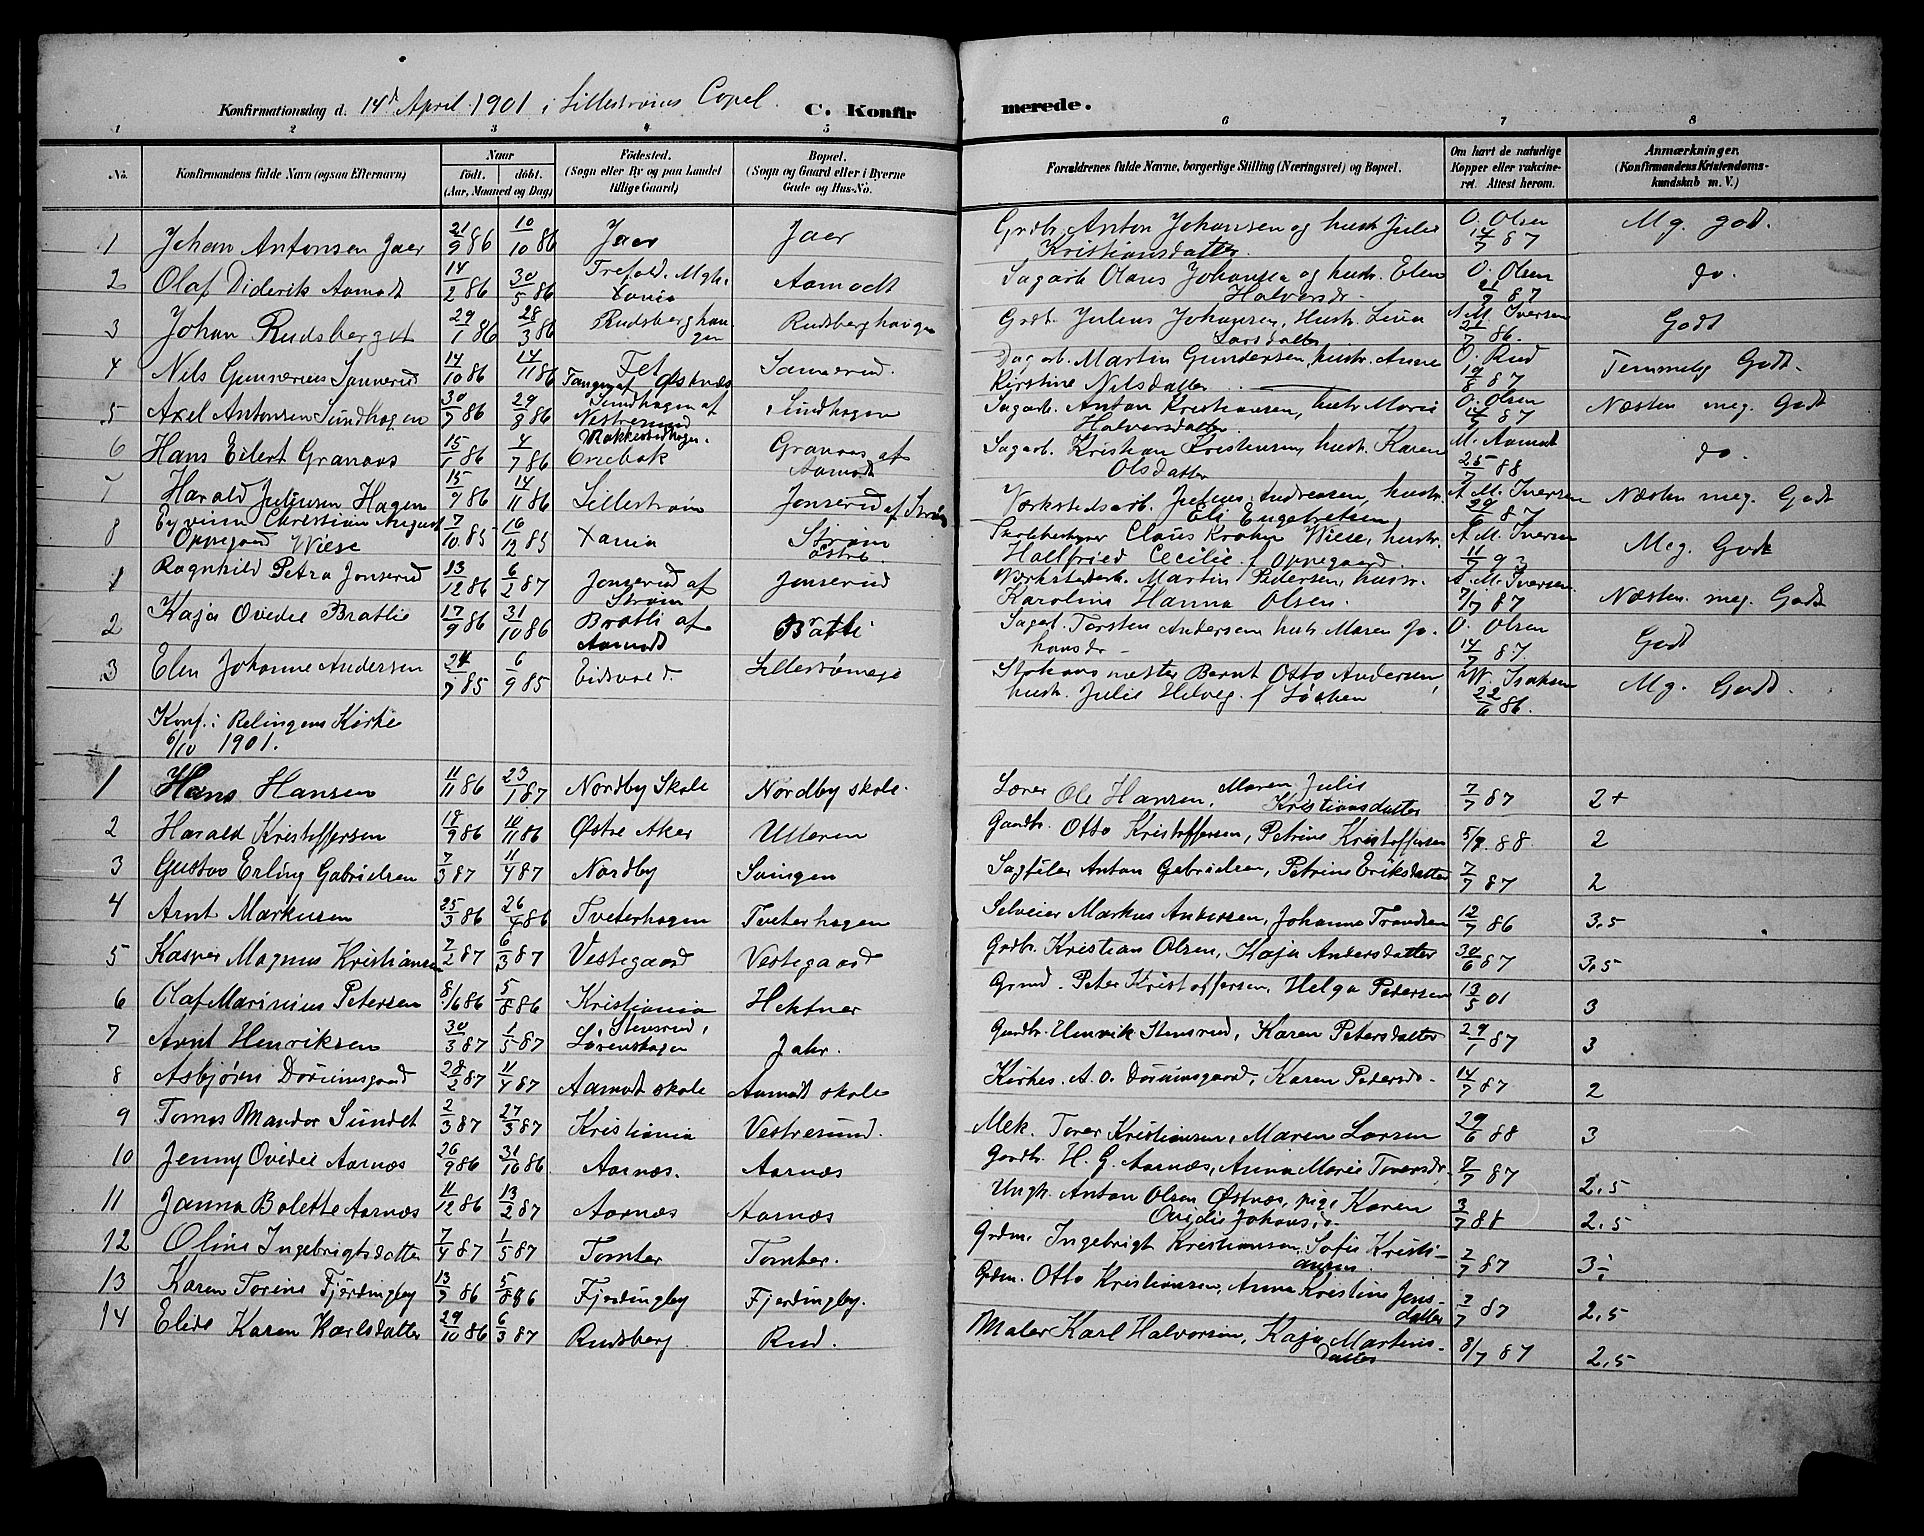 Konfirmationsdag d. 14d April 1901 i Lillestrøms Capel. C. Konfir merede.
1 2 3 4 5 6 7 8
No. Konfirmandens fulde Navn (ogsaa Efternavn) Naar født. døbt. (Aar, Maaned og Dag) Fødested. (Sogn eller By og paa Landet tillige Gaard) Bopæl. (Sogn og Gaard eller i Byerne Gade og Hus-No. Forældrenes fulde Navne, borgerlige Stilling (Næringsvei) og Bopæl. Om havt de naturlige Kopper eller vaccineret. Attest herom. Anmærkninger. (Konfirmandens Kristendomskundskab m. V.)
1 Johan Antonsen Jaer 21/9 86 10/10 86 Jaer Jaer Grdb. Anton Johansen og hustr Julie Kristiansdatter O. Olsen 14/7 87 Mg. god.
2 Olaf Diderik Aamodt 14/2 86 30/5 86 Trefold. Mgh. Xania Aamodt Sagarb Olaus Johansen og hustr. Elen Halvorsdr. O. Olsen 21/7 87 do.
3 Johan Rudsberget 29/1 86 28/3 86 Rudsberghaugen Rudsberghaugen Grdb. Julius Johansen, Hustr. Lina Larsdatter A. M. Iversen 21/7 86. Godt
4 Nils Gunnerius Sannerud 14/10 86 14/11 86 Fet Sannerud. Dagarb. Martin Gundersen, hustr. Anne Kirstine Nilsdatter O. Rud 19/8 87 Temmelig Godt.
5 Axel Antonsen Sundhagen 30/7 86 29/8 86 Tangen af Østnæs Sundhagen af Vestresund Sundhagen Sagarb. Anton Kristiansen, hustr Marie Halvorsdatter O. Olsen 14/7 87 Næsten meg. Godt
6 Hans Eilert Granaas 15/1 86 4/7 86 Enebak Granaas af Aamodt Sagarb. Kristian Kristiansen, hustr. Karen Olsdatter M. Aamodt 25/7 88 do.
7 Harald Juliusen Hagen 15/9 86 14/11 86 Lillestrøm Jonserud af Strøm Værkstedsarb. Julius Andreasen, hustr. Eli Engebretsen, A. M. Iversen 29/6 87 Næsten meg. Godt
8 Eyvinn Christian August Oppegaard Wiese 7/10 85 16/12 85 Xania Strøm Østre Skolebestyrer Claus Krohn Wiese, hustr. Hallfried Cecilie f. Oppegaard. A. M. Iversen 11/7 93 Meg. Godt
1 Ragnhild Petra Jonserud 13/12 86 6/2 87 Jonserud af Strøm Jonserud Værkstedarb. Martin Pedersen, hustr. Karoline Hanna Olsen. A. M. Iversen. 7/7 87 Næsten. meg. Godt
2 Kaja Ovidie Bratlie 17/9 86 31/10 86 Bratli af Aamodt Bratli Sagarb. Torsten Andersen hustr Maren Johansdr. O. Olsen 14/7 87 Godt
3 Elen Johanne Andersen 24/7 85 6/9 85 Eidsvold. Lillestrømeje mester Bernt Otto Andersen, hustr. Julie Helveg. f Løchen W. Isaksen 22/6 86. Mg. Godt.
Konf. i Relingens Kirke
6/10 1901.
1 Hans Hansen 11/11 86 23/1 87 Nordby Skole Nordby skole. Lærer Ole Hansen, Maren Julie Kristiansdatter 7/7 87 2+
2 Harald Kristoffersen 18/9 86 10/11 86 Østre Aker Ulleren Gaardb. Otto Kristoffersen, Petrine Kristoffersen 5/9. 88 2
3 Gustav Erling Gabrielsen 7/3 87 11/4 87 Nordby Svingen Sagfiler Anton Gabrielsen, Petrine Eriksdatter 7/7 87 2
4 Arnt Markusen 25/3 86 26/4 86 Tveterhagen Tveterhagen Selveier Markus Andersen, Johanne Trondsen 12/7 86 3,5
5 Kasper Magnus Kristiansen 7/2 87 6/3 87 Vestegaard Vestegaard Grdbr. Kristian Olsen, Kaja Andersdatter 30/6 87 3,5
6 Olaf Marinius Petersen 8/6 86 5/8 86 Kristiania Hektner Grmd. Peter Kristoffersen, Helga Pedersen 13/5 01 3
7 Arnt Henriksen 30/3 87 1/5 87 Stensrud, Lørenskogen Jahr. Gaardbr. Henrik Stensrud, Karen Petersdatter 29/1 87 3
8 Asbjørn Donimsgaard 28/2 87 11/4 87 Aamodt skole Aamodt skole Kirkes. A. O. Donimsgaard, Karen Pedersdr. 14/7 87 2
9 Tomas Mandor Sundet 2/3 87 27/3 87 Kristiania Vestresund. Mek. Torer Kristiansen, Maren Larsen 29/6 88 3
10 Jenny Ovidie Aarnæs 26/9 86 31/10 86 Aarnæs. Aarnæs Gaardbr. H. G. Aarnæs, Anna Marie Toversdr. 7/7 87 2,5
11 Janna Bolette Aarnæs 11/12 86 13/2 87 Aarnæs Aarnæs Ungk. Anton Olsen Østnæs, pige Karen Ovidie Johansdr. 3/7 88 2,5
12 Oline Ingebrigtsdatter 7/4 87 1/5 87 Tomter Tomter. Grdm. Ingebrigt Kristiansen, Sofie Kristiansen. 7/7 87 3÷
13 Karen Torine Fjerdingby 13/7 86 5/8 86 Fjerdingby Fjerdingby. Grdm. Otto Kristiansen, Anne Kristine Jensdatter 7/7 87 2,5
14 Elide Karen Karlsdatter 29/10 86 6/3 87 Rudsberg Rud. Maler Karl Halvorsen, Kaja Martinsdatter 8/7 87 2,5